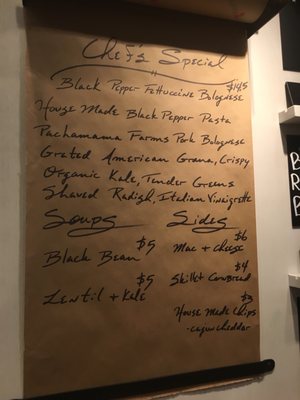 Chefs Special
$14.5
Black Pepper Fettuccine Bolognese
House Made Black Pepper Pasta
Pachamama Farms Pork Bolognese
Grated American Grana, Crispy
Organic Kale, Tender Greens
Shaved Radish, Italian Vinaigrette
Soups
Sides
$5
Black Bean
$5
Lentil + Kale
$6
Mac + Cheese
$4
Skillet Cornbread
$3
House Made Chips
- cajun cheddar